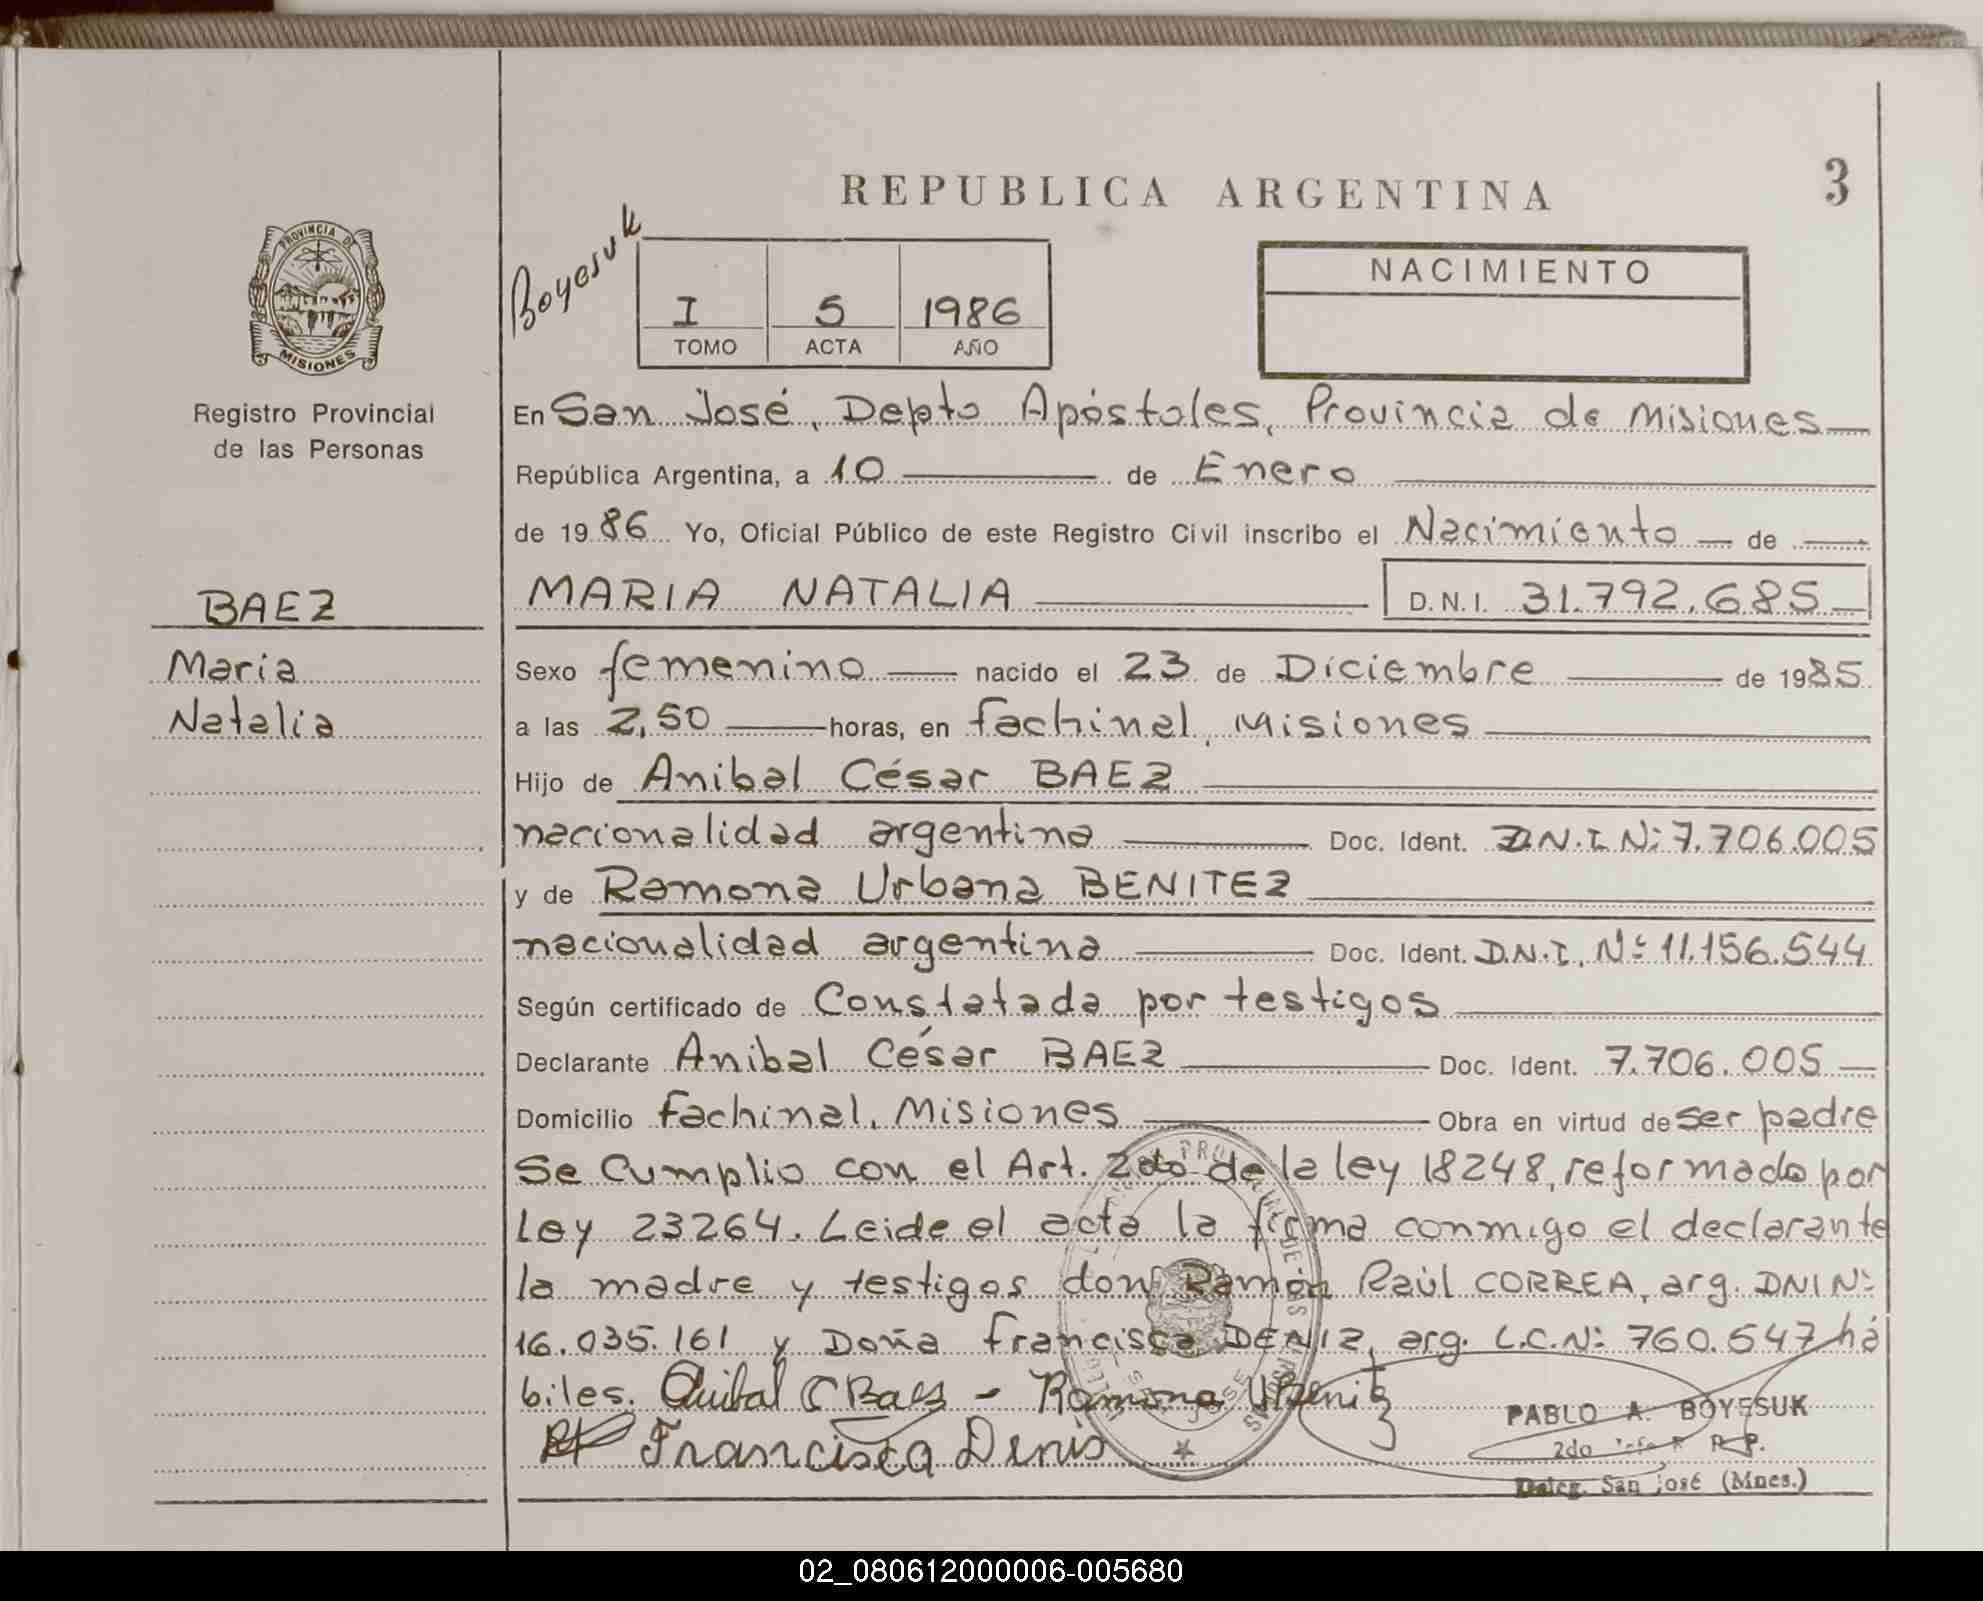 REPUBLICA ARGENTINA
3
PROVINCIA DE
MISIONES
Registro Provincial
de las Personas
Boyesuk
I 5 1986
TOMO ACTA AÑO
NACIMIENTO
En San José, Depto Apóstoles, Provincia de Misiones
República Argentina, a 10 de Enero
de 1986 Yo, Oficial Público de este Registro Civil inscribo el Nacimiento de
BAEZ
Maria
Natalia
MARIA NATALIA D.N.I. 31.792.685
Sexo femenino nacido el 23 de Diciembre de 1985
a las 2,50 horas, en Fachinal, Misiones
Hijo de Anibal César BAEZ
nacionalidad argentina Doc. Ident. D.N.I. Nº 7.706.005
y de Ramona Urbana BENITEZ
nacionalidad argentina Doc. Ident. D.N.I. Nº 11.156.544
Según certificado de Constatada por testigos
Declarante Anibal César BAEZ Doc. Ident. 7.706.005
Domicilio Fachinal, Misiones Obra en virtud de ser padre
Se Cumplio con el Art. 2do de la ley 18248, reformado por
Ley 23264. Leida el acta la firma conmigo el declarante
la madre y testigos don Ramon Raúl CORREA, arg. DNI Nº
16.035.161 y Doña Francisca DENIZ, arg. L.C.Nº 760.547 há
biles. Anibal C Baez - Ramona U Benitez
Francisca Denis
PABLO A. BOYESUK
2do Jefe R. P.
Deleg. San José (Mnes.)
02_080612000006-005680